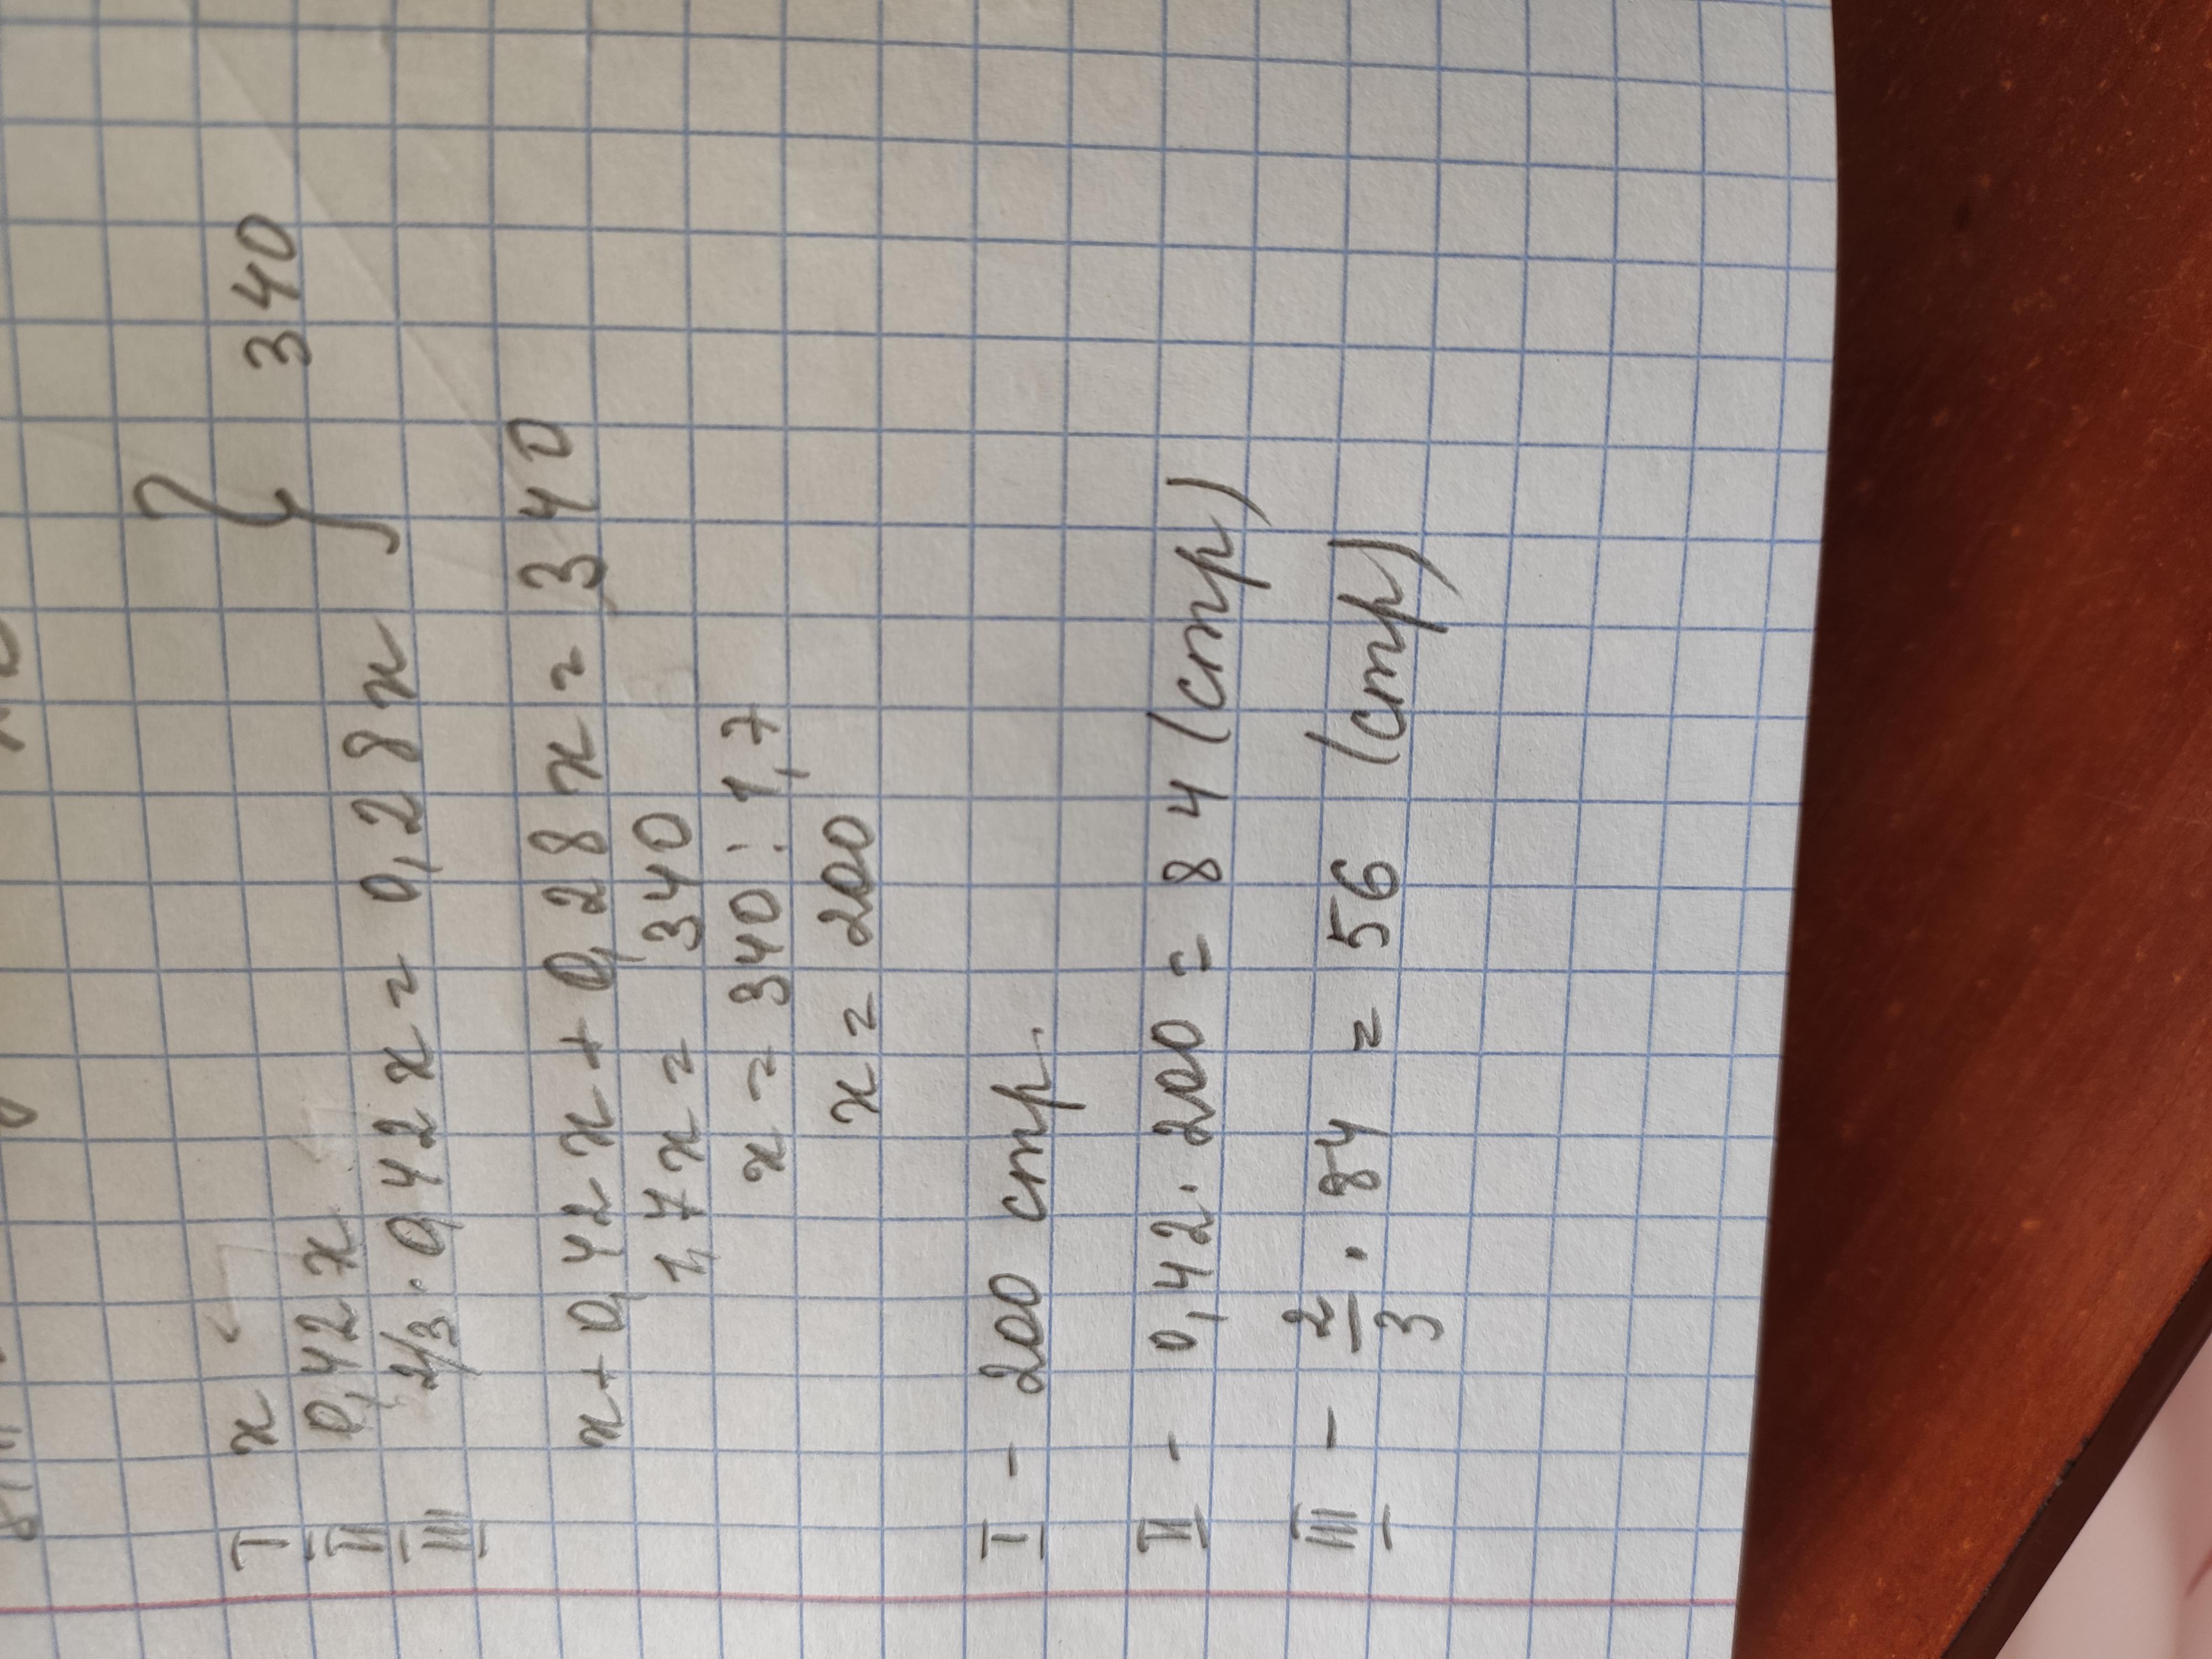 I x
II 0,42x } 340
III 2/3 · 0,42x = 0,28x
x + 0,42x + 0,28x = 340
1,7x = 340
x = 340 : 1,7
x = 200
I - 200 стр.
II - 0,42 · 200 = 84 (стр)
III - 2/3 · 84 = 56 (стр)